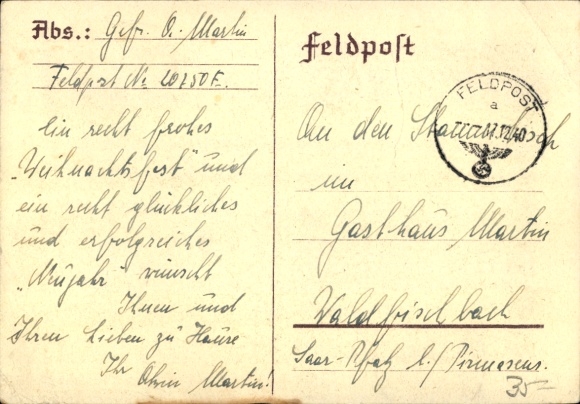 Abs.: Gefr. O. Martin
Feldpost Nr. 20750 F.
Ein recht frohes
„Weihnachtsfest" und
ein recht glückliches
und erfolgreiches
„Neujahr" wünscht
Ihnen und
Ihren Lieben zu Hause
Ihr Martin!
Feldpost
FELDPOST
a
12.40
An den Stammtisch
im
Gasthaus Martin
Waldfischbach
Saar-Pfalz b./Pirmasens.
35-